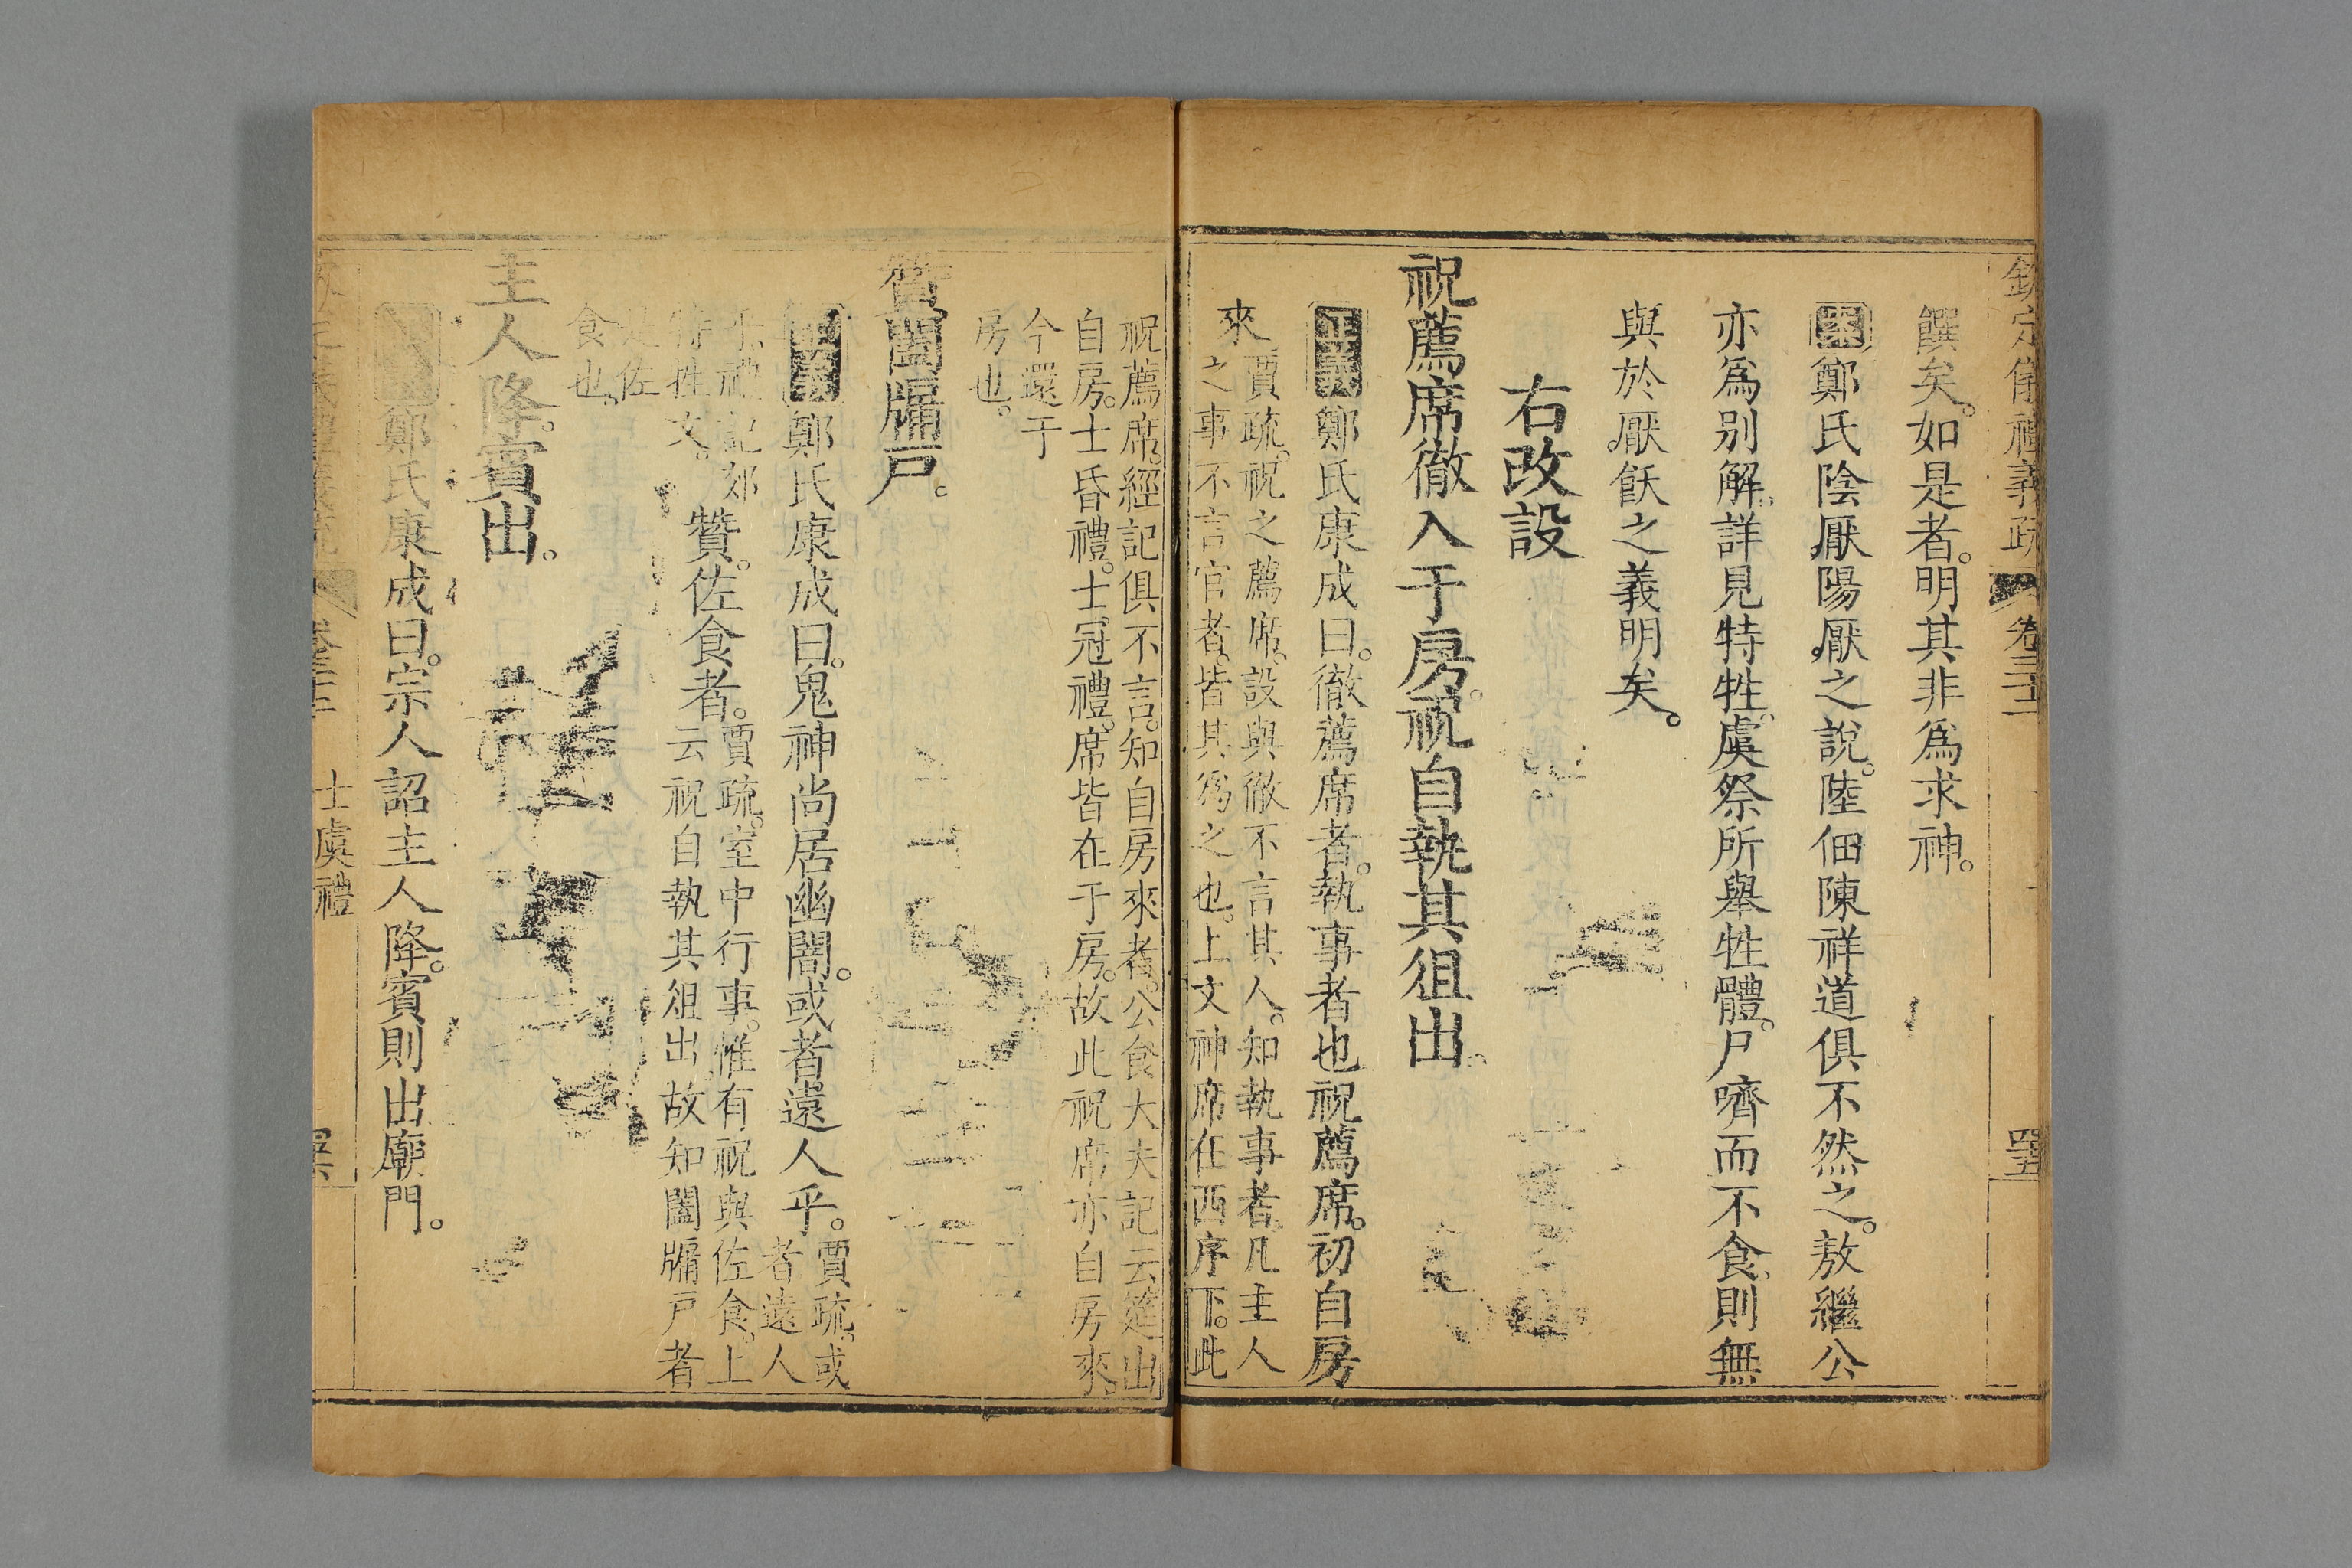 欽定儀禮義疏 卷三十三 四五
饌矣。如是者。明其非爲求神。
案鄭氏陰厭陽厭之說。陸佃陳祥道俱不然之。敖繼公
亦爲别解。詳見特牲。虞祭所舉牲體。尸嚌而不食。則無
與於厭飫之義明矣。
右改設
祝薦席徹入于房。祝自執其俎出。
正義鄭氏康成曰。徹薦席者。執事者也祝薦席。初自房
來。賈疏。祝之薦席。設與徹不言其人。知執事者。凡主人
之事不言官者。皆其爲之也。上文神席在西序下。此
祝薦席。經記俱不言。知自房來者。公食大夫記云筵出
自房。士昏禮。士冠禮。席皆在于房。故此祝席亦自房來。
今還于
房也。
贊闔牖戶。
鄭氏康成曰。鬼神尚居幽闇。或者遠人乎。賈疏。或
者遠人
乎。禮記郊
特牲文。贊。佐食者。賈疏。室中行事。惟有祝與佐食。上
云祝自執其俎出。故知闔牖戶者
是佐
食也。
主人降。賓出。
鄭氏康成曰。宗人詔主人降。賓則出廟門。
士虞禮